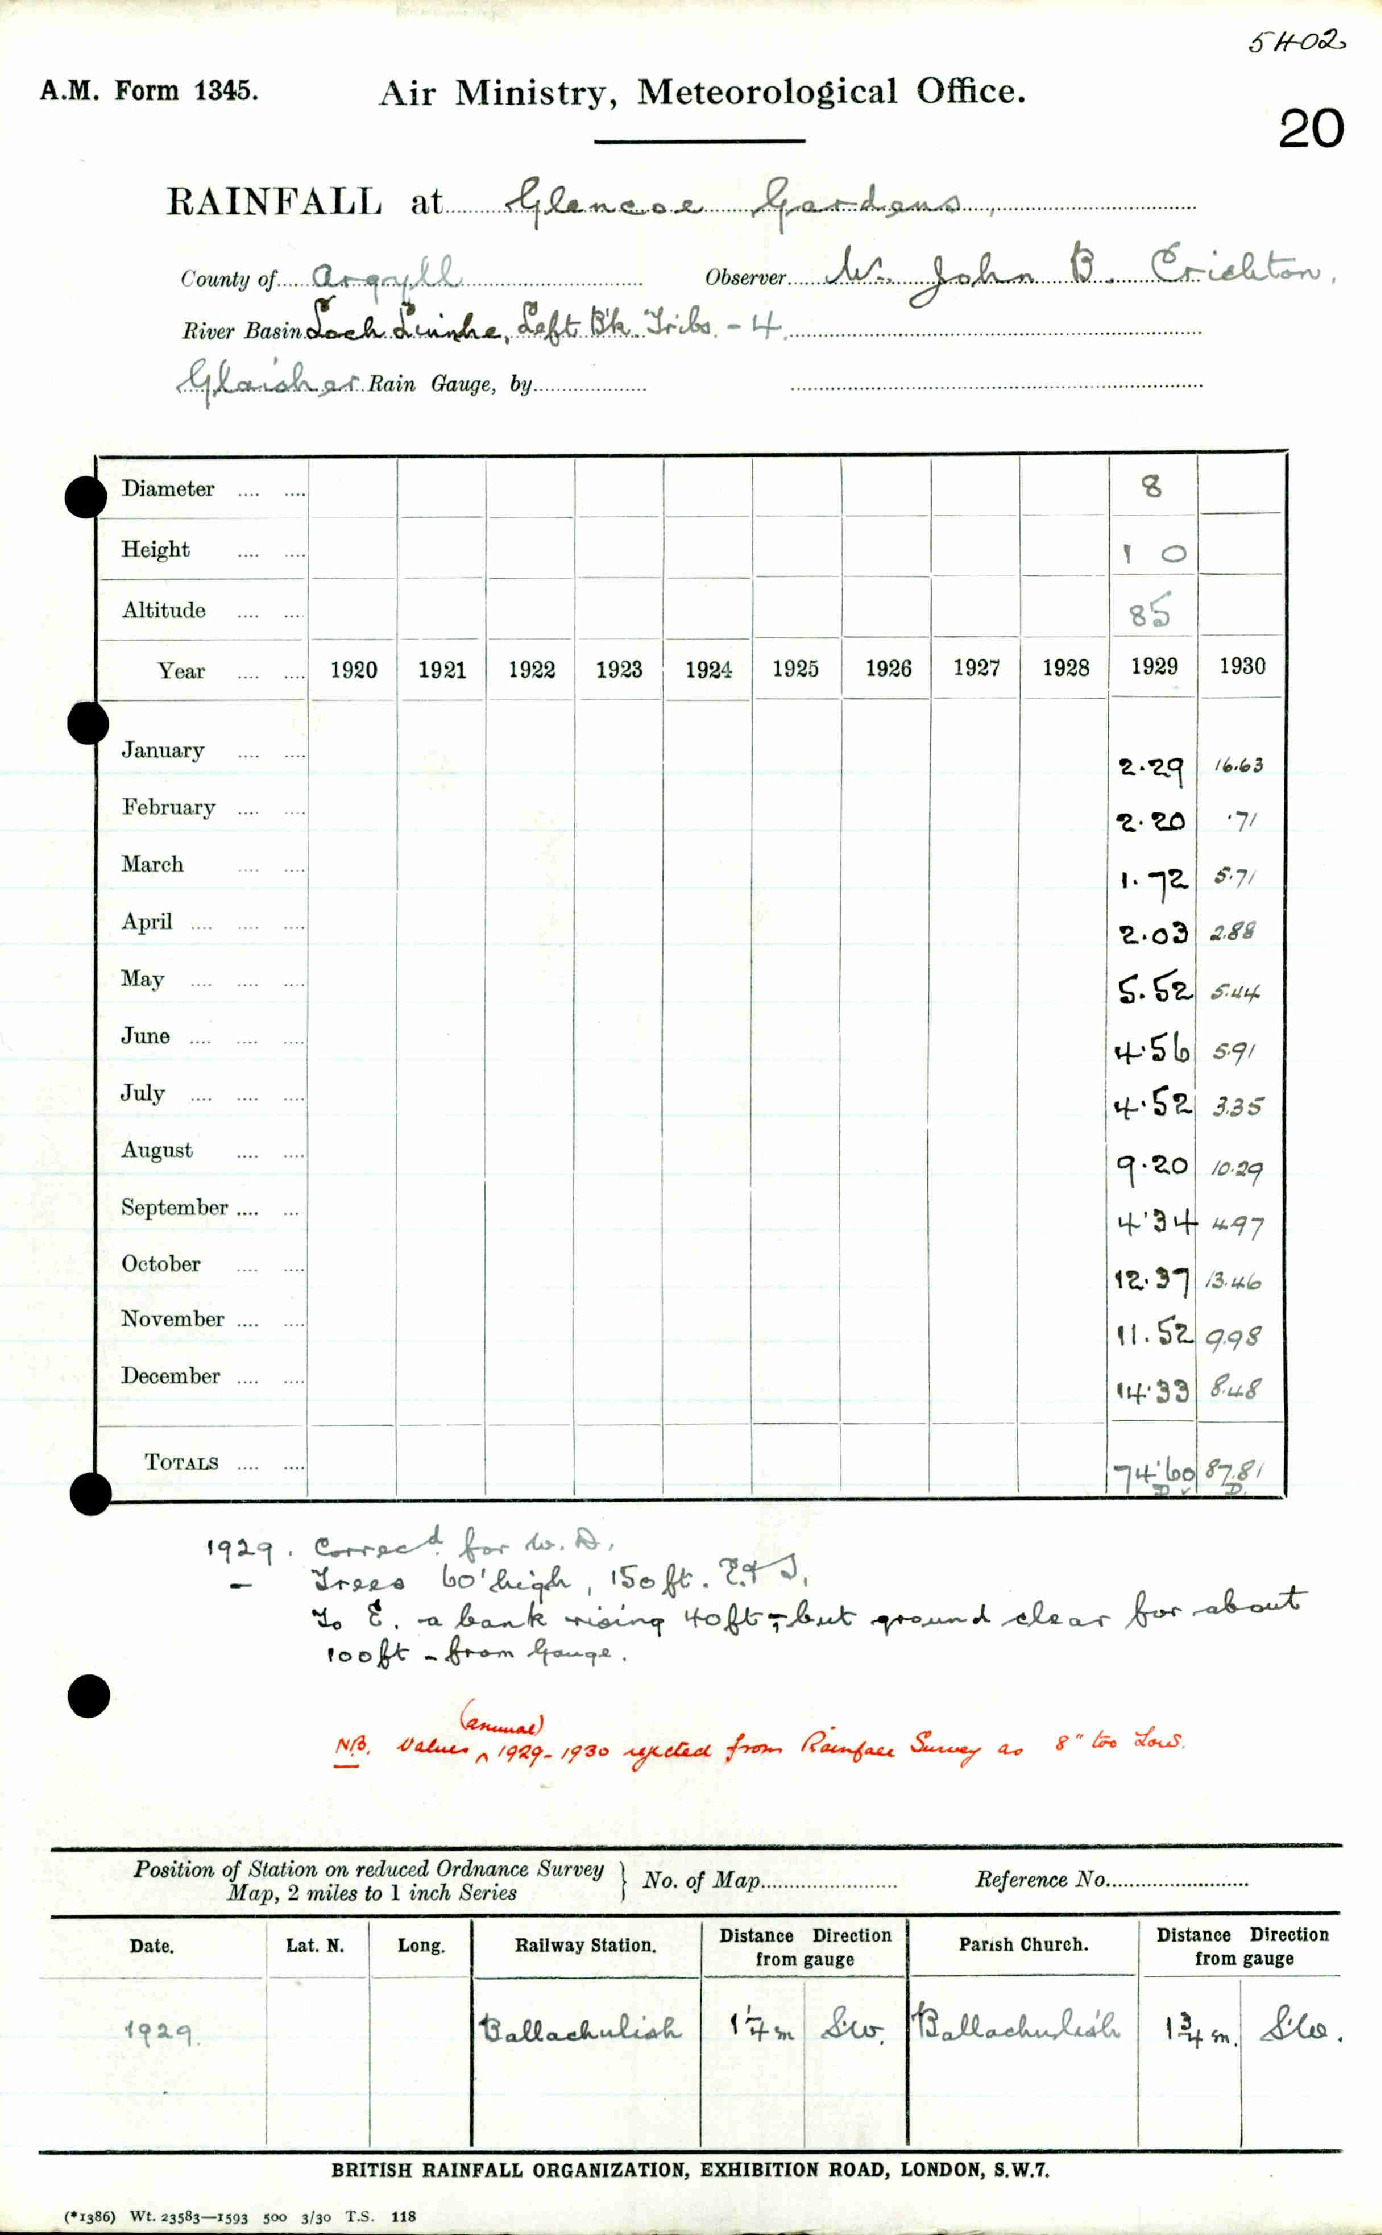 5402
A.M. Form 1345. Air Ministry, Meteorological Office.
20
RAINFALL at Glencoe Gardens,
County of Argyll Observer Mr. John B. Crichton,
River Basin Loch Linnhe, Left Bk Tribs. - 4.
Glaisher Rain Gauge, by
Diameter 8
Height 1 0
Altitude 85
Year 1920 1921 1922 1923 1924 1925 1926 1927 1928 1929 1930
January 2.29 16.63
February 2.20 .71
March 1.72 5.71
April 2.03 2.88
May 5.52 5.44
June 4.56 5.91
July 4.52 3.35
August 9.20 10.29
September 4.34 4.97
October 12.37 13.46
November 11.52 9.98
December 14.33 8.48
TOTALS 74.60 87.81
D ✓ D.
1929. Correcd. for W.D.
- Trees 60' high, 150 ft. E. & S.
To E. a bank rising 40ft; but ground clear for about
100ft - from Gauge.
(annual)
N.B. Values ^ 1929-1930 rejected from Rainfall Survey as 8" too Low.
Position of Station on reduced Ordnance Survey
Map, 2 miles to 1 inch Series } No. of Map Reference No.
Date. Lat. N. Long. Railway Station. Distance Direction from gauge Parish Church. Distance Direction from gauge
1929. Ballachulish 1 1/4 m SW. Ballachulish 1 3/4 m. SW.
BRITISH RAINFALL ORGANIZATION, EXHIBITION ROAD, LONDON, S.W.7.
(*1386) Wt. 23583—1593 500 3/30 T.S. 118